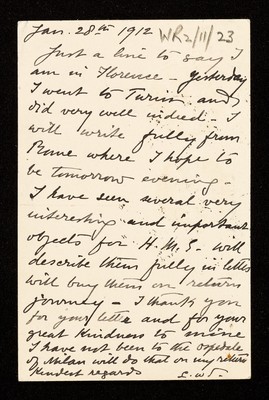 Jan. 28th 1912
WR2/11/23
Just a line to say I
am in Florence – yesterday
I went to Turin and
did very well indeed – I
will write fully from
Rome where I hope to
be tomorrow evening –
I have seen several very
interesting and important
objects for H.M.S. – will
describe them fully in letter
will buy them on return
journey – I thank you
for your letter and for your
great kindness to mine
I have not been to the Ospedale
of Milan will do that on my return
Kindest regards